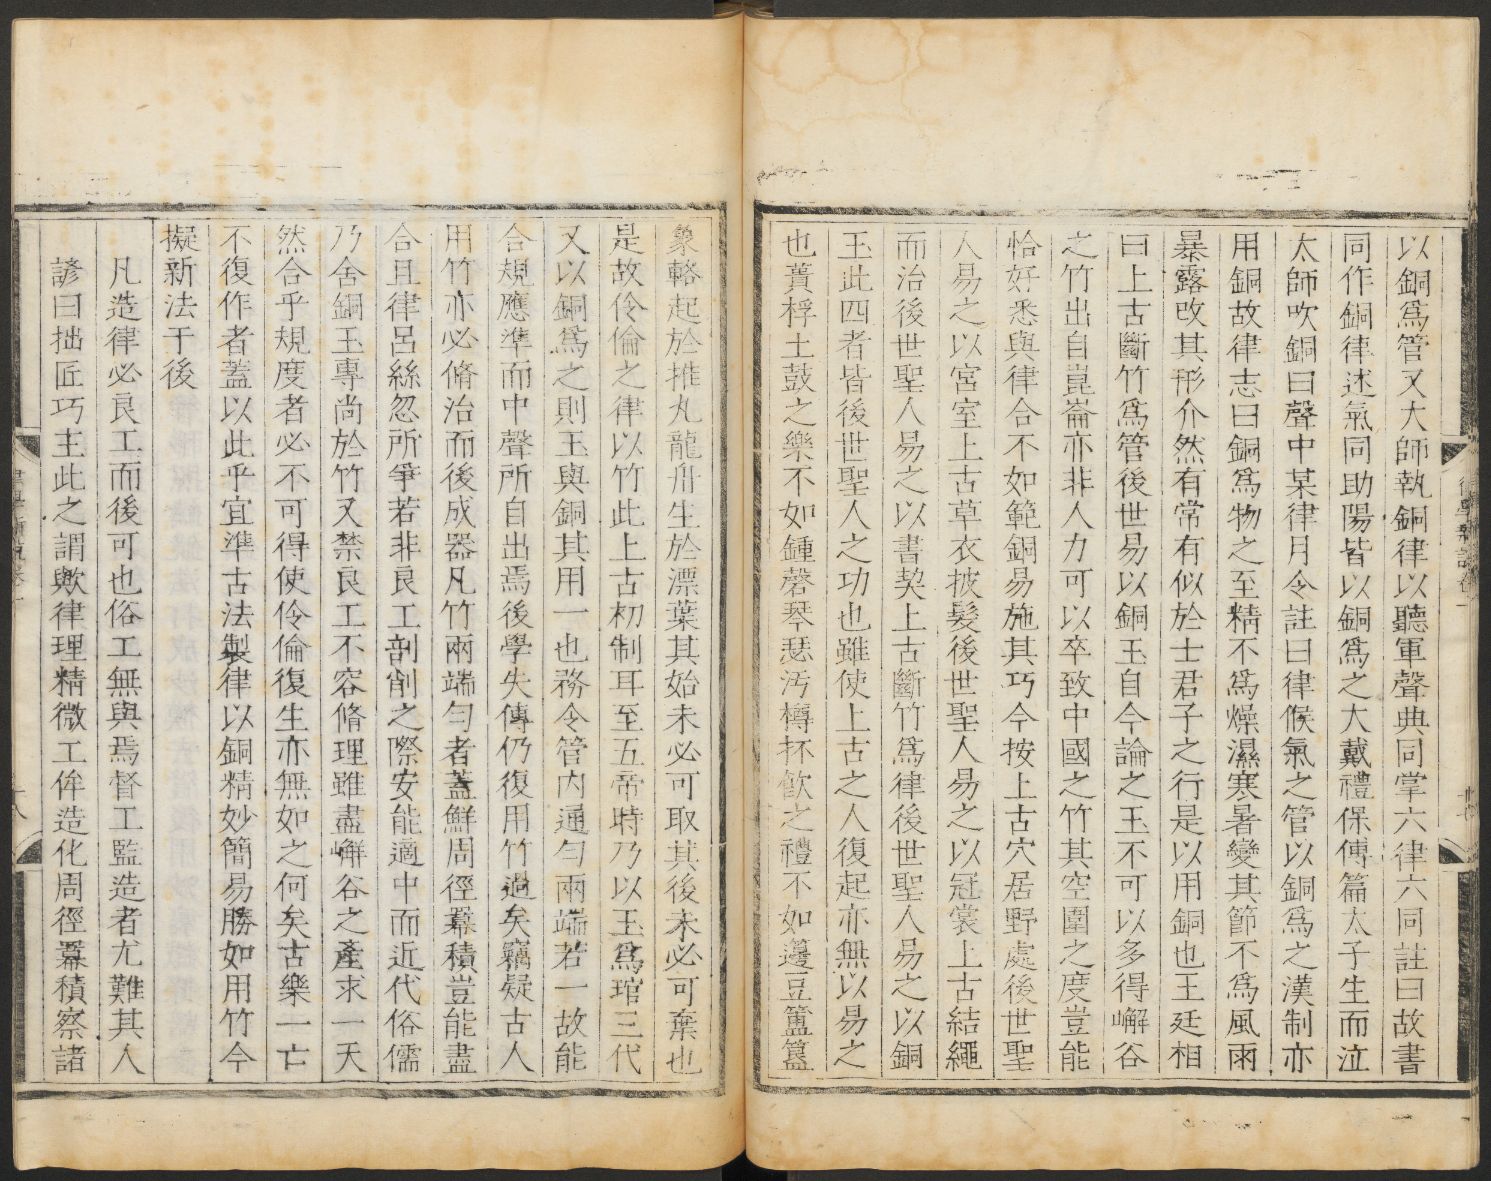 以銅爲管又大師執銅律以聽軍聲典同掌六律六同註曰故書
同作銅律述氣同助陽皆以銅爲之大戴禮保傳篇太子生而泣
太師吹銅曰聲中某律月令註曰律候氣之管以銅爲之漢制亦
用銅故律志曰銅爲物之至精不爲燥濕寒暑變其節不爲風雨
暴露改其形介然有常有似於士君子之行是以用銅也王廷相
曰上古斷竹爲管後世易以銅玉自今論之玉不可以多得嶰谷
之竹出自崑崙亦非人力可以卒致中國之竹其空圍之度豈能
恰好悉與律合不如範銅易施其巧今按上古穴居野處後世聖
人易之以宮室上古草衣披髮後世聖人易之以冠裳上古結繩
而治後世聖人易之以書契上古斷竹爲律後世聖人易之以銅
玉此四者皆後世聖人之功也雖使上古之人復起亦無以易之
也蕢桴土鼓之樂不如鍾磬琴瑟汚樽抔飮之禮不如籩豆簠簋
象輅起於推丸龍舟生於漂葉其始未必可取其後未必可棄也
是故伶倫之律以竹此上古初制耳至五帝時乃以玉爲琯三代
又以銅爲之則玉與銅其用一也務令管内通勻兩端若一故能
合規應準而中聲所自出焉後學失傳仍復用竹過矣竊疑古人
用竹亦必脩治而後成器凡竹兩端勻者蓋鮮周徑羃積豈能盡
合且律呂絲忽所爭若非良工剖削之際安能適中而近代俗儒
乃舍銅玉專尚於竹又禁良工不容脩理雖盡嶰谷之產求一天
然合乎規度者必不可得使伶倫復生亦無如之何矣古樂一亡
不復作者蓋以此乎宜準古法製律以銅精妙簡易勝如用竹今
擬新法于後
凡造律必良工而後可也俗工無與焉督工監造者尤難其人
諺曰拙匠巧主此之謂歟律理精微工侔造化周徑羃積察諸